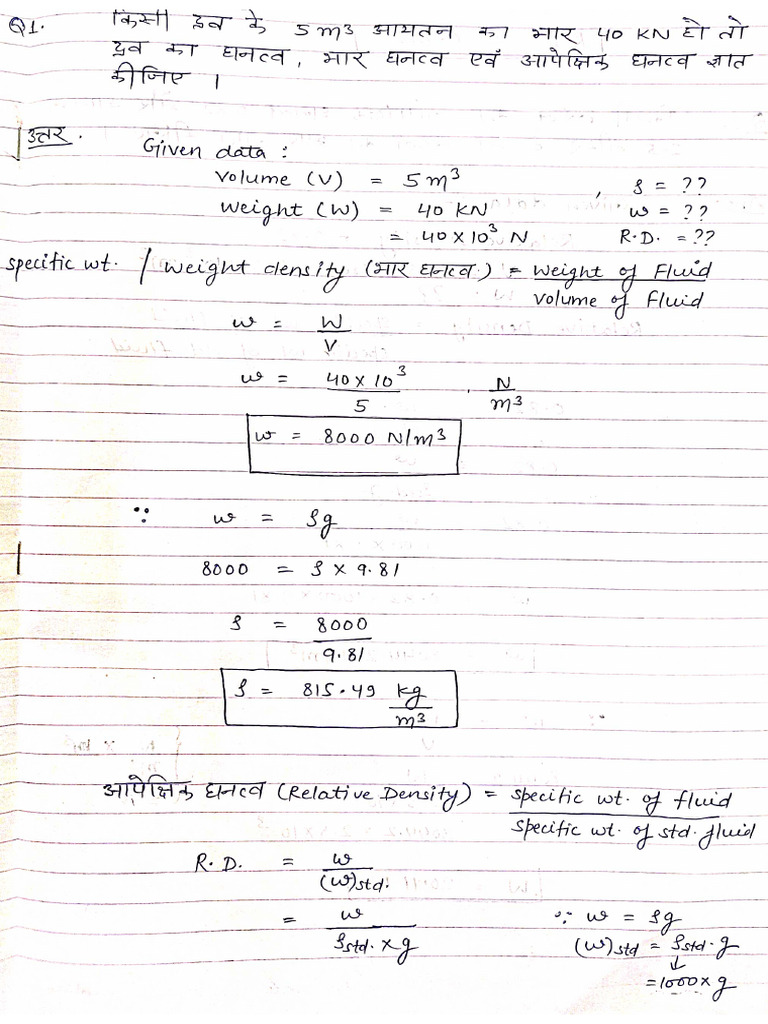 Q1. किसी द्रव के 5 m³ आयतन का भार 40 KN हो तो
द्रव का घनत्व, भार घनत्व एवं आपेक्षिक घनत्व ज्ञात
कीजिए ।
उत्तर. Given data :
volume (V) = 5 m³ , ρ = ??
weight (W) = 40 KN w = ??
= 40 × 10³ N R.D. = ??
specific wt. / weight density (भार घनत्व) = weight of Fluid / volume of fluid
w = W / V
w = 40 × 10³ / 5 . N / m³
w = 8000 N/m³
∵ w = ρg
8000 = ρ × 9.81
ρ = 8000 / 9.81
ρ = 815.49 kg / m³
आपेक्षिक घनत्व (Relative Density) = specific wt. of fluid / specific wt. of std. fluid
R.D. = w / (w)std.
= w / ρstd. × g ∵ w = ρg
(w)std = ρstd . g
↓
= 1000 × g